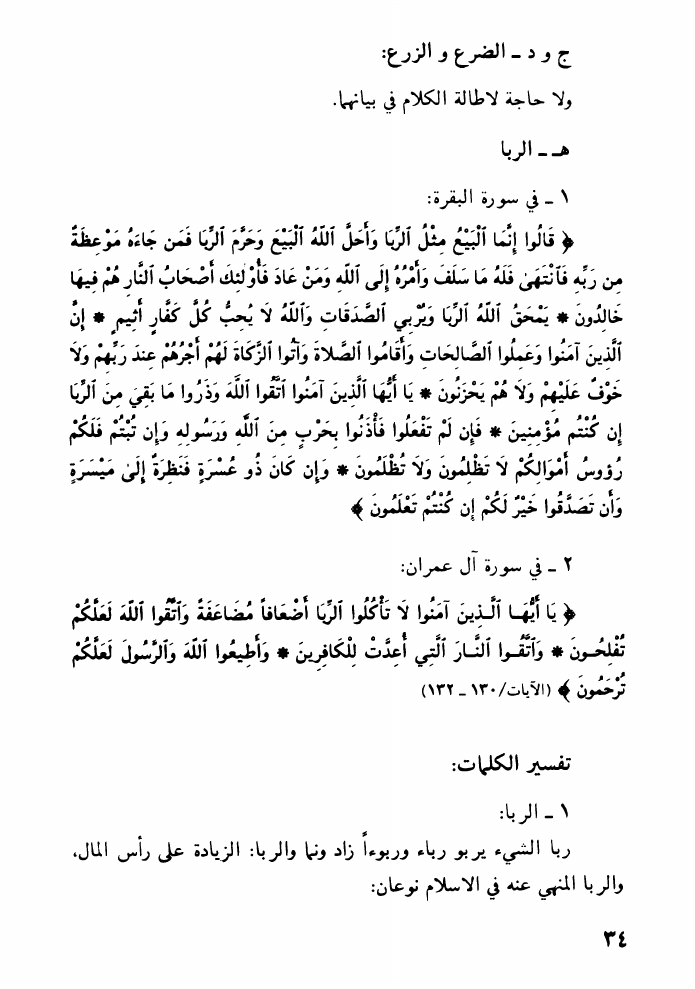 ج و د ـ الضرع و الزرع:
ولا حاجة لاطالة الكلام في بيانهما.
هـ ـ الربا
١ ـ في سورة البقرة:
﴿ قَالُوا إِنَّمَا ٱلْبَيْعُ مِثْلُ ٱلرِّبَا وَأَحَلَّ ٱللهُ ٱلْبَيْعَ وَحَرَّمَ ٱلرِّبَا فَمَن جَاءَهُ مَوْعِظَةٌ
مِن رَبِّهِ فَٱنْتَهَىٰ فَلَهُ مَا سَلَفَ وَأَمْرُهُ إِلَى ٱللهِ وَمَنْ عَادَ فَأُوْلٰئِكَ أَصْحَابُ ٱلنَّارِ هُمْ فِيهَا
خَالِدُونَ * يَمْحَقُ ٱللهُ ٱلرِّبَا وَيُرْبِي ٱلصَّدَقَاتِ وَٱللهُ لَا يُحِبُّ كُلَّ كَفَّارٍ أَثِيمٍ * إِنَّ
ٱلَّذِينَ آمَنُوا وَعَمِلُوا ٱلصَّالِحَاتِ وَأَقَامُوا ٱلصَّلَاةَ وَآتَوُا ٱلزَّكَاةَ لَهُمْ أَجْرُهُمْ عِندَ رَبِّهِمْ وَلَا
خَوْفٌ عَلَيْهِمْ وَلَا هُمْ يَحْزَنُونَ * يَا أَيُّهَا ٱلَّذِينَ آمَنُوا ٱتَّقُوا ٱللَّهَ وَذَرُوا مَا بَقِيَ مِنَ ٱلرِّبَا
إِن كُنْتُم مُؤْمِنِينَ * فَإِن لَمْ تَفْعَلُوا فَأْذَنُوا بِحَرْبٍ مِنَ ٱللَّهِ وَرَسُولِهِ وَإِن تُبْتُمْ فَلَكُمْ
رُؤُوسُ أَمْوَالِكُمْ لَا تَظْلِمُونَ وَلَا تُظْلَمُونَ * وَإِن كَانَ ذُو عُسْرَةٍ فَنَظِرَةٌ إِلَىٰ مَيْسَرَةٍ
وَأَن تَصَدَّقُوا خَيْرٌ لَكُمْ إِن كُنْتُمْ تَعْلَمُونَ ﴾
٢ ـ في سورة آل عمران:
﴿ يَا أَيُّهَـا ٱلَّـذِينَ آمَنُوا لَا تَأْكُلُوا ٱلرِّبَا أَضْعَافاً مُضَاعَفَةً وَٱتَّقُوا ٱللهَ لَعَلَّكُمْ
تُفْلِحُـونَ * وَٱتَّقُـوا ٱلنَّـارَ ٱلَّتِي أُعِدَّتْ لِلْكَافِرِينَ * وَأَطِيعُوا ٱللهَ وَٱلرَّسُولَ لَعَلَّكُمْ
تُرْحَمُونَ ﴾ (الآيات/١٣٠ ـ ١٣٢)
تفسير الكلمات:
١ ـ الربا:
ربا الشيء يربو رباء وربوءاً زاد ونما والربا: الزيادة على رأس المال،
والربا المنهي عنه في الاسلام نوعان:
٣٤